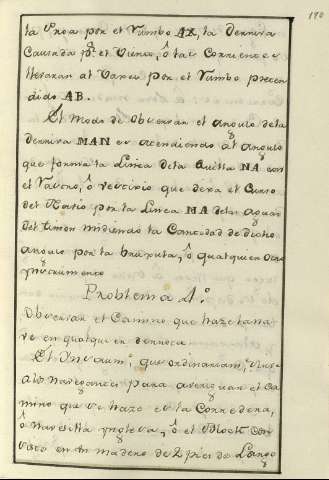 190
la Proa por el Rumbo AZ, la Derriva
Causada pr. el Viento, ô tal Corriente
llevaran al Vaxel por el Rumbo preten
dido AB.
El Modo de Observar el angulo dela
Derriva MAN es atendiendo al angulo
que forma la Linea dela Quilla NA con
el Rastro, ô que dexa el Curso
del Navio por la Linea MA delas aguas
del timon midiendo la Cantidad de dicho
angulo por la bruxula, ô qualquier otro
Ynstrumento
Problema 4º
Observar el Camino que haze la na
ve en qualquier derrota
El que ordinariam.
alos Navegantes para averiguar el Ca
mino que se haze es la Corredera,
ô Navesilla ynglesa, ô el
en un madero de 2 pies de Largo